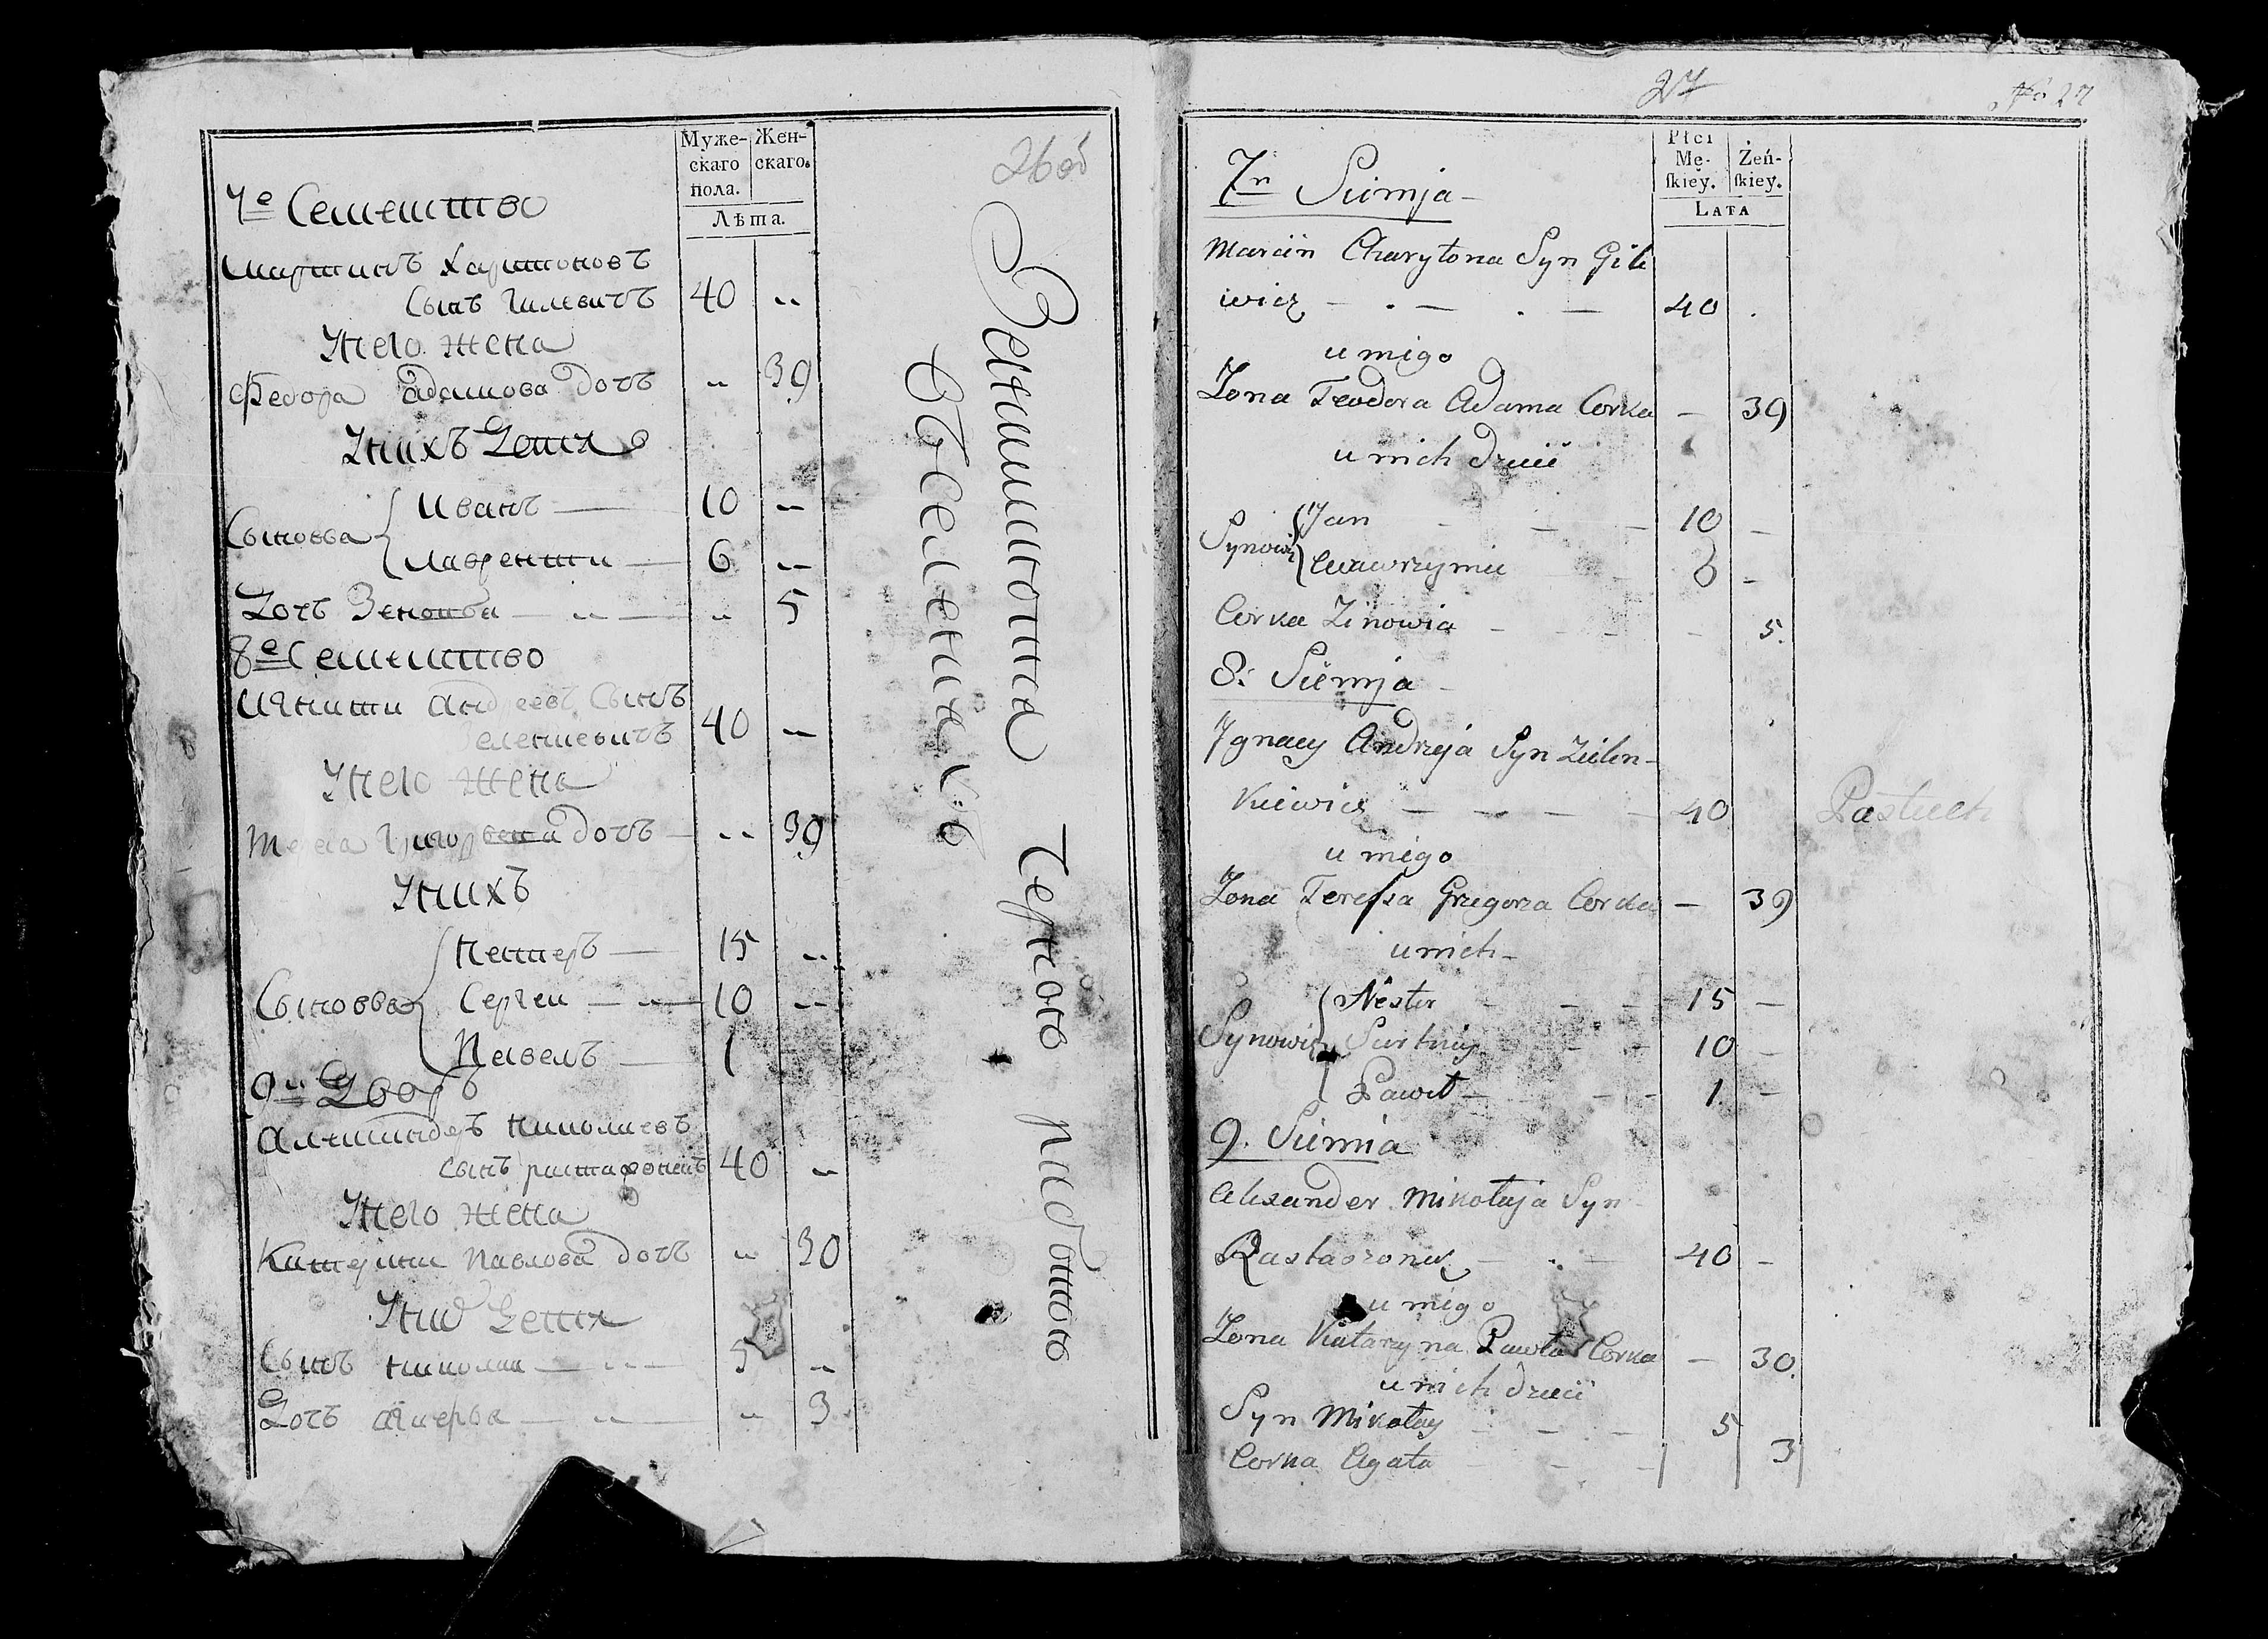 Муже-
скаго
пола.
Жен-
скаго.
Лѣта.
26 об
7е Семейство
Мартинъ Харитоновъ
Сынъ Гилевичъ 40 "
Унего жена
Федора Адамова дочь " 39
Унихъ Дети
Сыновья { Иванъ — 10 "
Лаврентии — 6 "
Дочь Зеновья — " — " 5
8е Семейство
Игнатии Андреевъ Сынъ
Зеленкевичъ 40 "
Унего жена
Тереса Григорьева дочь — " 39
Унихъ
Сыновья { Нестеръ — 15 "
Сергеи — " — 10 "
Павелъ — 1
9й Дворъ
Александеръ Николаевъ
Сынъ 40 "
Унего жена
Катерина Павлова дочь " 30
Унихъ Дети
Сынъ Николаи — " — 5 "
Дочь — " — " 3
Черного
Въ
27
No 27
Płci
Mę-
ſkiey.
Żeń-
ſkiey.
LATA
7n Siimja
Marcin Charytona Syn Gile
wicz — . — . — 40 .
u niego
Zona Teodora Adama Corka — 39
u nich dzieci
Synowie { Jan — — 10 —
Wawrzyniec 6 —
Corka Zinowia — — — 5.
8: Siemja
Ignacy Andrzeja Syn Zielen-
kiewicz — — — — 40 Pastuch
u niego
Zona Tereſsa Grzegorza Corka — 39
u nich
Synowie { Nester — — — 15 —
10 —
Paweł — — — 1. —
9. Siemia
Alexander Mikołaja Syn
40 —
u niego
Zona Katarzyna Pawła Corka — 30.
u nich dzieci
Syn Mikołay — — — 5
Corka Agata — — — 3